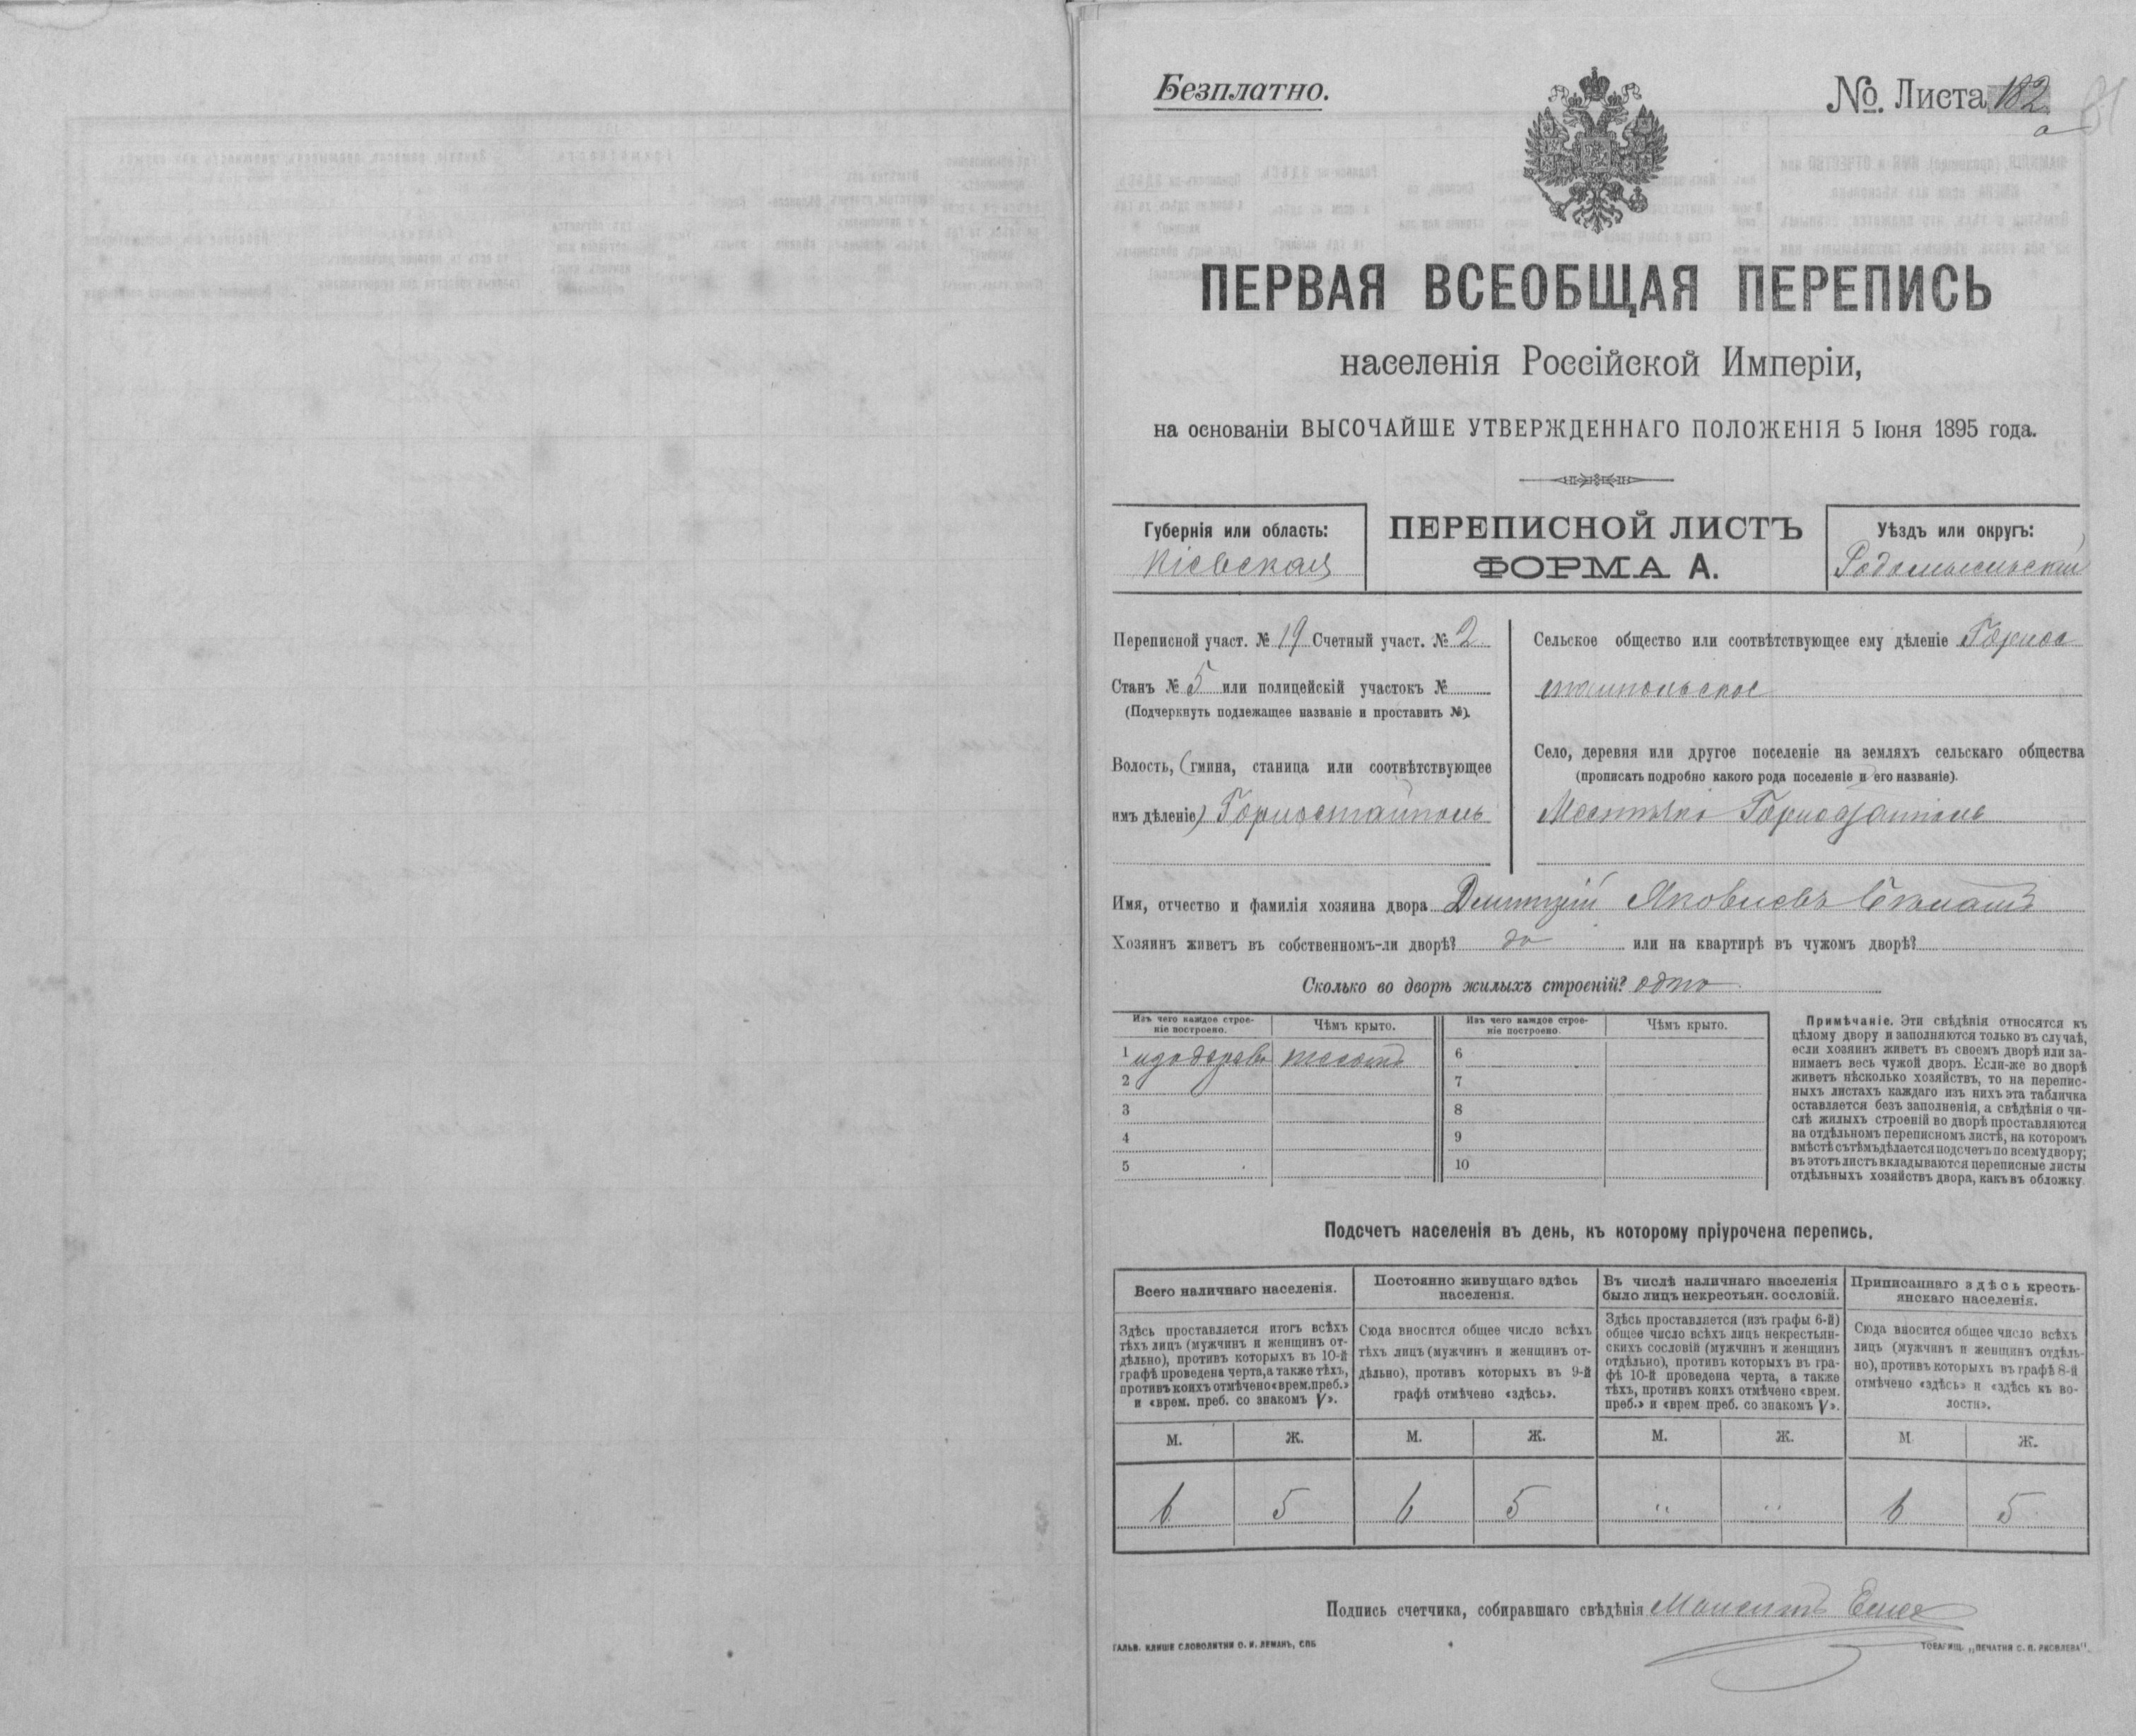 Безплатно.
№ Листа 182
а
ПЕРВАЯ ВСЕОБЩАЯ ПЕРЕПИСЬ
населенія Россійской Имперіи,
на основаніи ВЫСОЧАЙШЕ УТВЕРЖДЕННАГО ПОЛОЖЕНІЯ 5 Іюня 1895 года.
Губернія или область:
Кіевская
ПЕРЕПИСНОЙ ЛИСТЪ
ФОРМА А.
Уѣздъ или округъ:
Радомысльскій
Переписной участ. № 19 Счетный участ. № 2
Станъ № 5 или полицейскій участокъ №
(Подчеркнуть подлежащее названіе и проставить №).
Волость, (гмина, станица или соотвѣтствующее
имъ дѣленіе) Горностайполь
Сельское общество или соотвѣтствующее ему дѣленіе Горнос
тайпольское
Село, деревня или другое поселеніе на земляхъ сельскаго общества
(прописать подробно какого рода поселеніе и его названіе).
Местечко Горностайполь
Имя, отчество и фамилія хозяина двора Дмитрій Яковлевъ
Хозяинъ живетъ въ собственномъ-ли дворѣ? да или на квартирѣ въ чужомъ дворѣ?
Сколько во дворѣ жилыхъ строеній? одно
Изъ чего каждое строе-
ніе построено.
Чѣмъ крыто.
Изъ чего каждое строе-
ніе построено.
Чѣмъ крыто.
1 изъ дерева тесомъ 6
2 7
3 8
4 9
5 10
Примѣчаніе. Эти свѣдѣнія относятся къ
цѣлому двору и заполняются только въ случаѣ,
если хозяинъ живетъ въ своемъ дворѣ или за-
нимаетъ весь чужой дворъ. Если-же во дворѣ
живетъ нѣсколько хозяйствъ, то на перепис-
ныхъ листахъ каждаго изъ нихъ эта табличка
оставляется безъ заполненія, а свѣдѣнія о чи-
слѣ жилыхъ строеній во дворѣ проставляются
на отдѣльномъ переписномъ листѣ, на которомъ
вмѣстѣ съ тѣмъ дѣлается подсчетъ по всему двору;
въ этотъ листъ вкладываются переписные листы
отдѣльныхъ хозяйствъ двора, какъ въ обложку.
Подсчетъ населенія въ день, къ которому пріурочена перепись.
Всего наличнаго населенія.
Здѣсь проставляется итогъ всѣхъ
тѣхъ лицъ (мужчинъ и женщинъ от-
дѣльно), противъ которыхъ въ 10-й
графѣ проведена черта, а также тѣхъ,
противъ коихъ отмѣчено «врем. преб.»
и «врем. преб. со знакомъ V».
Постоянно живущаго здѣсь
населенія.
Сюда вносится общее число всѣхъ
тѣхъ лицъ (мужчинъ и женщинъ от-
дѣльно), противъ которыхъ въ 9-й
графѣ отмѣчено «здѣсь».
Въ числѣ наличнаго населенія
было лицъ некрестьян. сословій.
Здѣсь проставляется (изъ графы 6-й)
общее число всѣхъ лицъ некрестьян-
скихъ сословій (мужчинъ и женщинъ
отдѣльно), противъ которыхъ въ гра-
фѣ 10-й проведена черта, а также
тѣхъ, противъ коихъ отмѣчено «врем.
преб.» и «врем преб. со знакомъ V».
Приписаннаго здѣсь кресть-
янскаго населенія.
Сюда вносится общее число всѣхъ
лицъ (мужчинъ и женщинъ отдѣль-
но), противъ которыхъ въ графѣ 8-й
отмѣчено «здѣсь» и «здѣсь къ во-
лости».
М. Ж. М. Ж. М. Ж. М. Ж.
6 5 6 5 " " 6 5
Подпись счетчика, собиравшаго свѣдѣнія
ГАЛЬВ. КЛИШЕ СЛОВОЛИТНИ О. И. ЛЕМАНЪ, СПБ
ТОВАРИЩ. „ПЕЧАТНЯ С. П. ЯКОВЛЕВА".